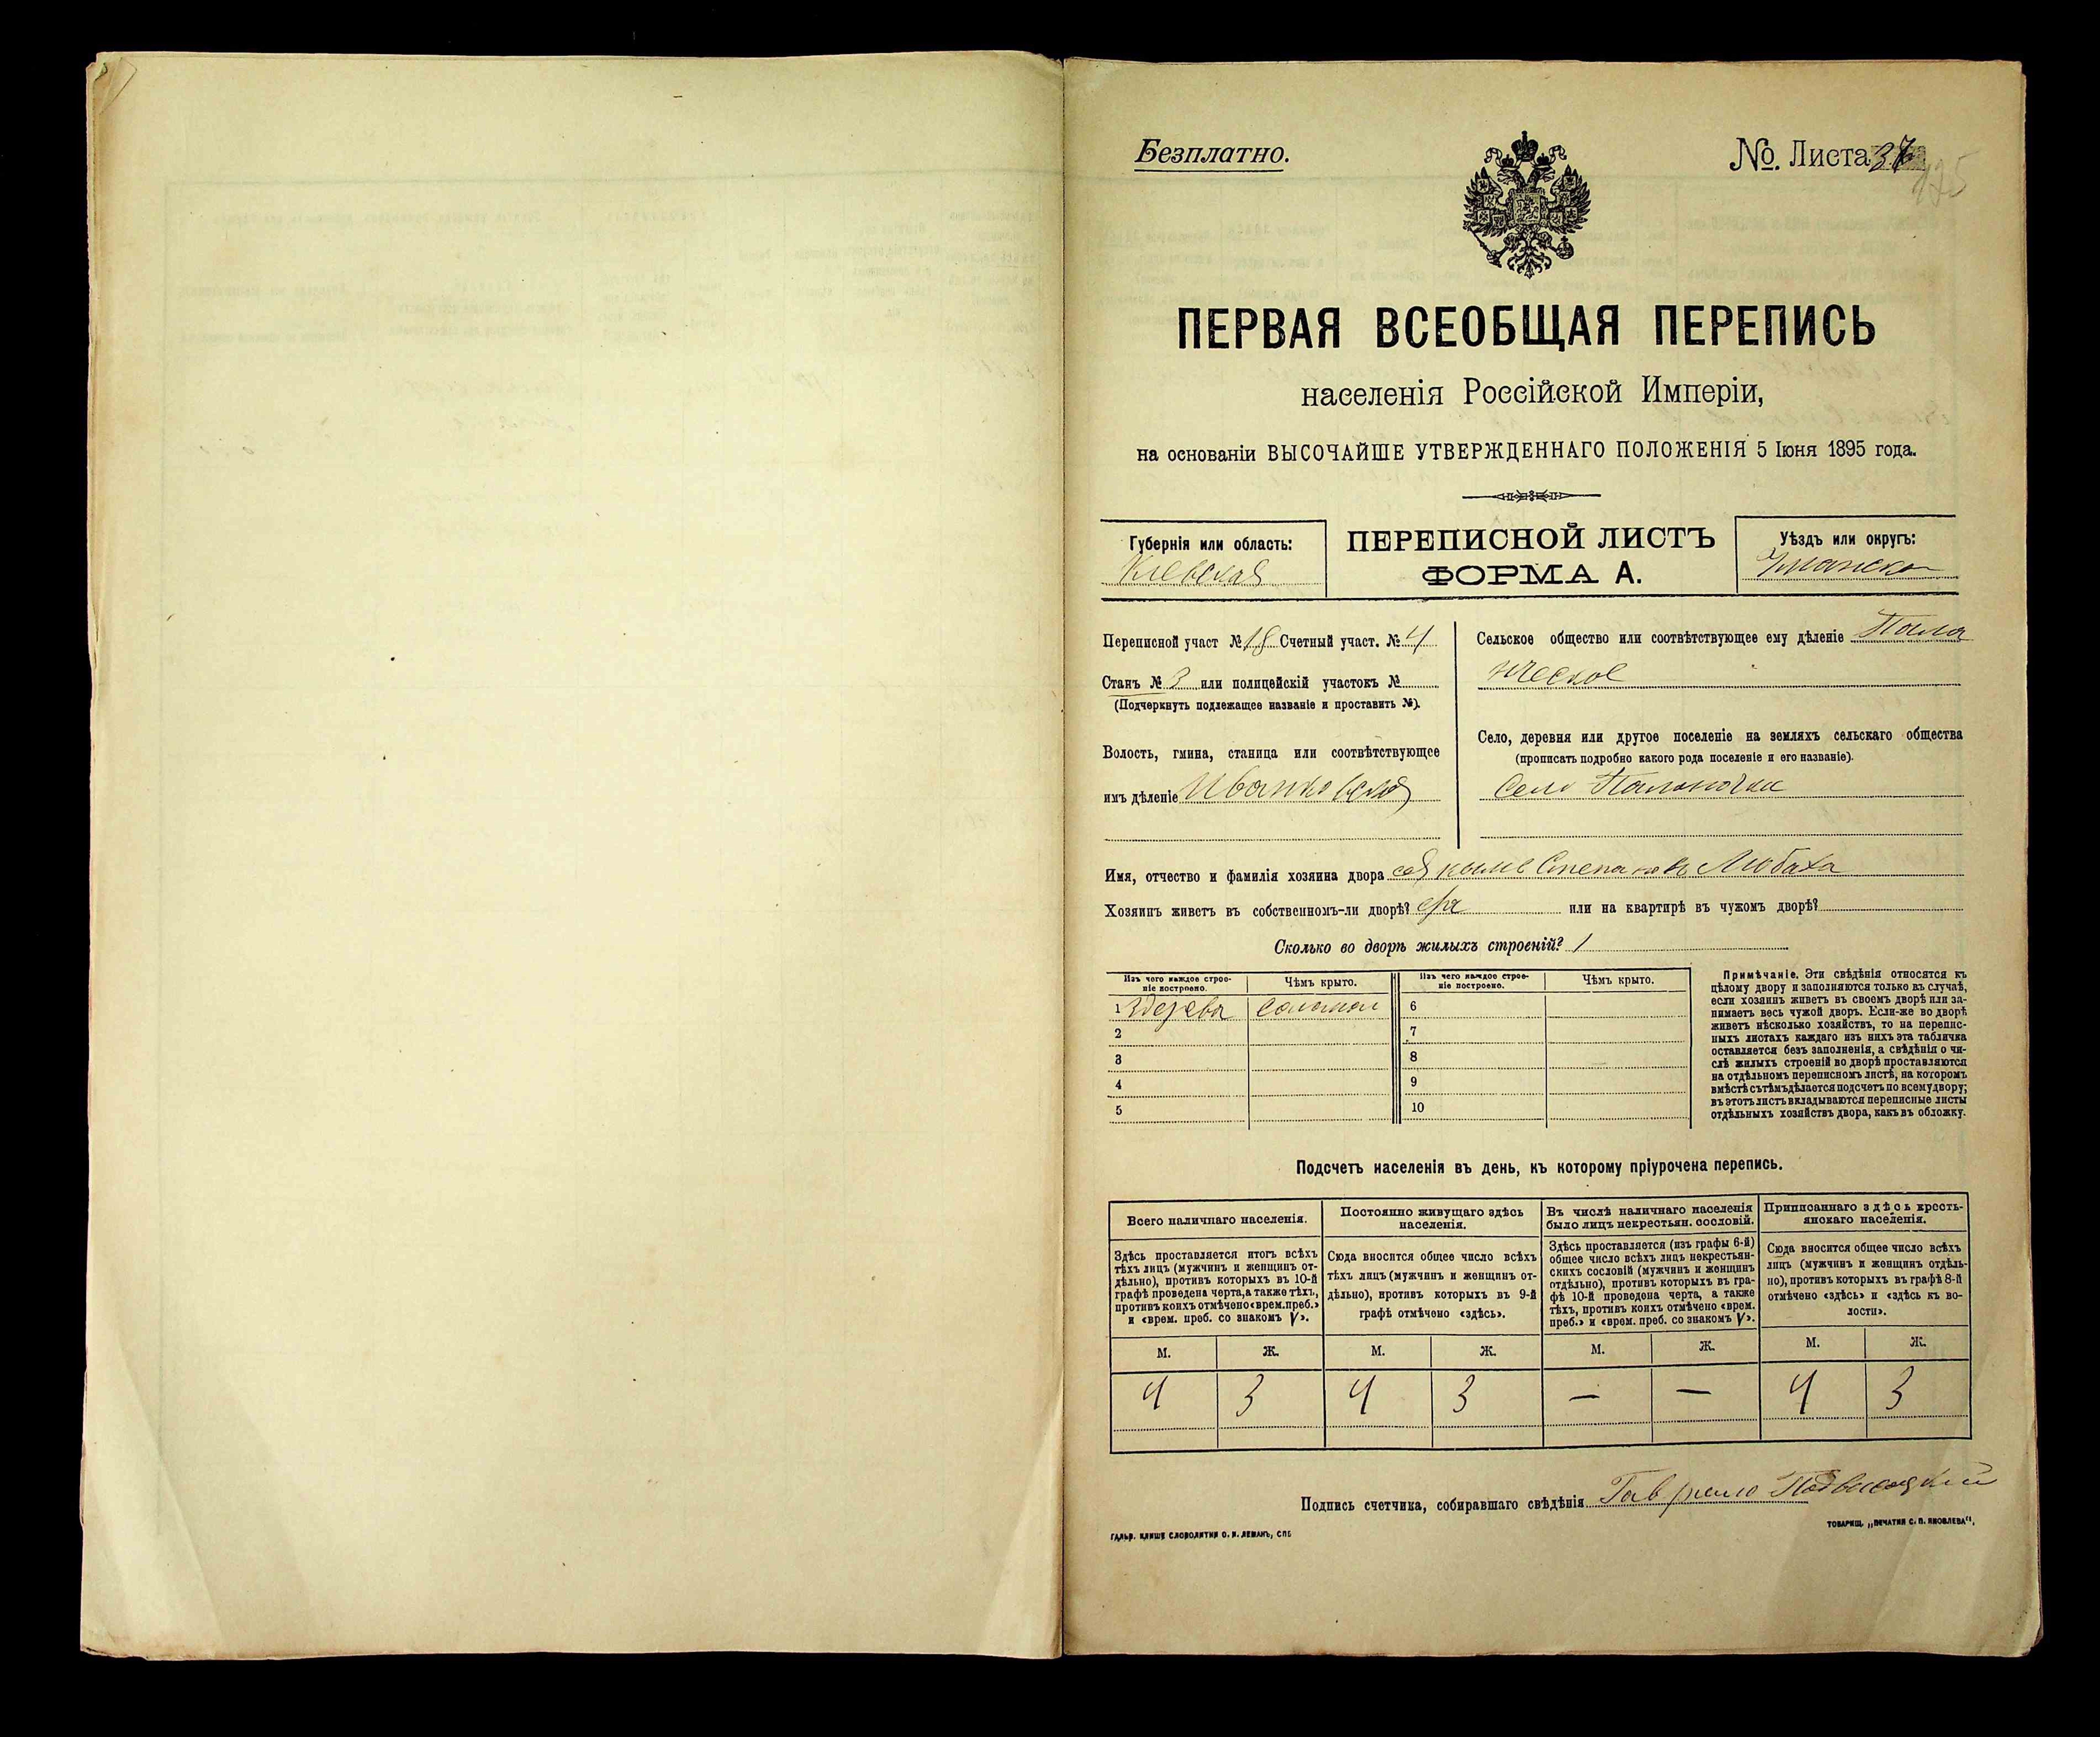 Безплатно.
№. Листа
ПЕРВАЯ ВСЕОБЩАЯ ПЕРЕПИСЬ
населенія Россійской Имперіи,
на основаніи ВЫСОЧАЙШЕ УТВЕРЖДЕННАГО ПОЛОЖЕНІЯ 5 Іюня 1895 года.
Губернія или область:
Кіевская
ПЕРЕПИСНОЙ ЛИСТЪ
ФОРМА А.
Уѣздъ или округъ:
Уманск
Переписной участ № 18 Счетный участ. № 4
Станъ № 3 или полицейскій участокъ №
(Подчеркнуть подлежащее названіе и проставить №).
Волость, гмина, станица или соотвѣтствующее
имъ дѣленіе Иваньковская
Сельское общество или соотвѣтствующее ему дѣленіе
Село, деревня или другое поселеніе на земляхъ сельскаго общества
(прописать подробно какого рода поселеніе и его названіе).
Село
Имя, отчество и фамилія хозяина двора Степановъ Любаха
Хозяинъ живетъ въ собственномъ-ли дворѣ? или на квартирѣ въ чужомъ дворѣ?
Сколько во дворѣ жилыхъ строеній? 1
Изъ чего каждое строе-
ніе построено.
Чѣмъ крыто.
Изъ чего каждое строе-
ніе построено.
Чѣмъ крыто.
1 Здерева
6
2
7
3
8
4
9
5
10
Примѣчаніе. Эти свѣдѣнія относятся къ
цѣлому двору и заполняются только въ случаѣ,
если хозяинъ живетъ въ своемъ дворѣ или за-
нимаетъ весь чужой дворъ. Если-же во дворѣ
живетъ нѣсколько хозяйствъ, то на перепис-
ныхъ листахъ каждаго изъ нихъ эта табличка
оставляется безъ заполненія, а свѣдѣнія о чи-
слѣ жилыхъ строеній во дворѣ проставляются
на отдѣльномъ переписномъ листѣ, на которомъ
вмѣстѣ съ тѣмъ дѣлается подсчетъ по всему двору;
въ этотъ листъ вкладываются переписные листы
отдѣльныхъ хозяйствъ двора, какъ въ обложку.
Подсчетъ населенія въ день, къ которому пріурочена перепись.
Всего наличнаго населенія.
Здѣсь проставляется итогъ всѣхъ
тѣхъ лицъ (мужчинъ и женщинъ от-
дѣльно), противъ которыхъ въ 10-й
графѣ проведена черта, а также тѣхъ,
противъ коихъ отмѣчено «врем. преб.»
и «врем. преб. со знакомъ V».
Постоянно живущаго здѣсь
населенія.
Сюда вносится общее число всѣхъ
тѣхъ лицъ (мужчинъ и женщинъ от-
дѣльно), противъ которыхъ въ 9-й
графѣ отмѣчено «здѣсь».
Въ числѣ наличнаго населенія
было лицъ некрестьян. сословій.
Здѣсь проставляется (изъ графы 6-й)
общее число всѣхъ лицъ некрестьян-
скихъ сословій (мужчинъ и женщинъ
отдѣльно), противъ которыхъ въ гра-
фѣ 10-й проведена черта, а также
тѣхъ, противъ коихъ отмѣчено «врем.
преб.» и «врем. преб. со знакомъ V».
Приписаннаго здѣсь кресть-
янскаго населенія.
Сюда вносится общее число всѣхъ
лицъ (мужчинъ и женщинъ отдѣль-
но), противъ которыхъ въ графѣ 8-й
отмѣчено «здѣсь» и «здѣсь къ во-
лости».
М. Ж. М. Ж. М. Ж. М. Ж.
4 3 4 3 — — 4 3
Подпись счетчика, собиравшаго свѣдѣнія Гаврило Подвысоцкій
ГАЛЬВ. КЛИШЕ СЛОВОЛИТНИ О. И. ЛЕМАНЪ, СПБ
ТОВАРИЩ. „ПЕЧАТНЯ С. П. ЯКОВЛЕВА“,